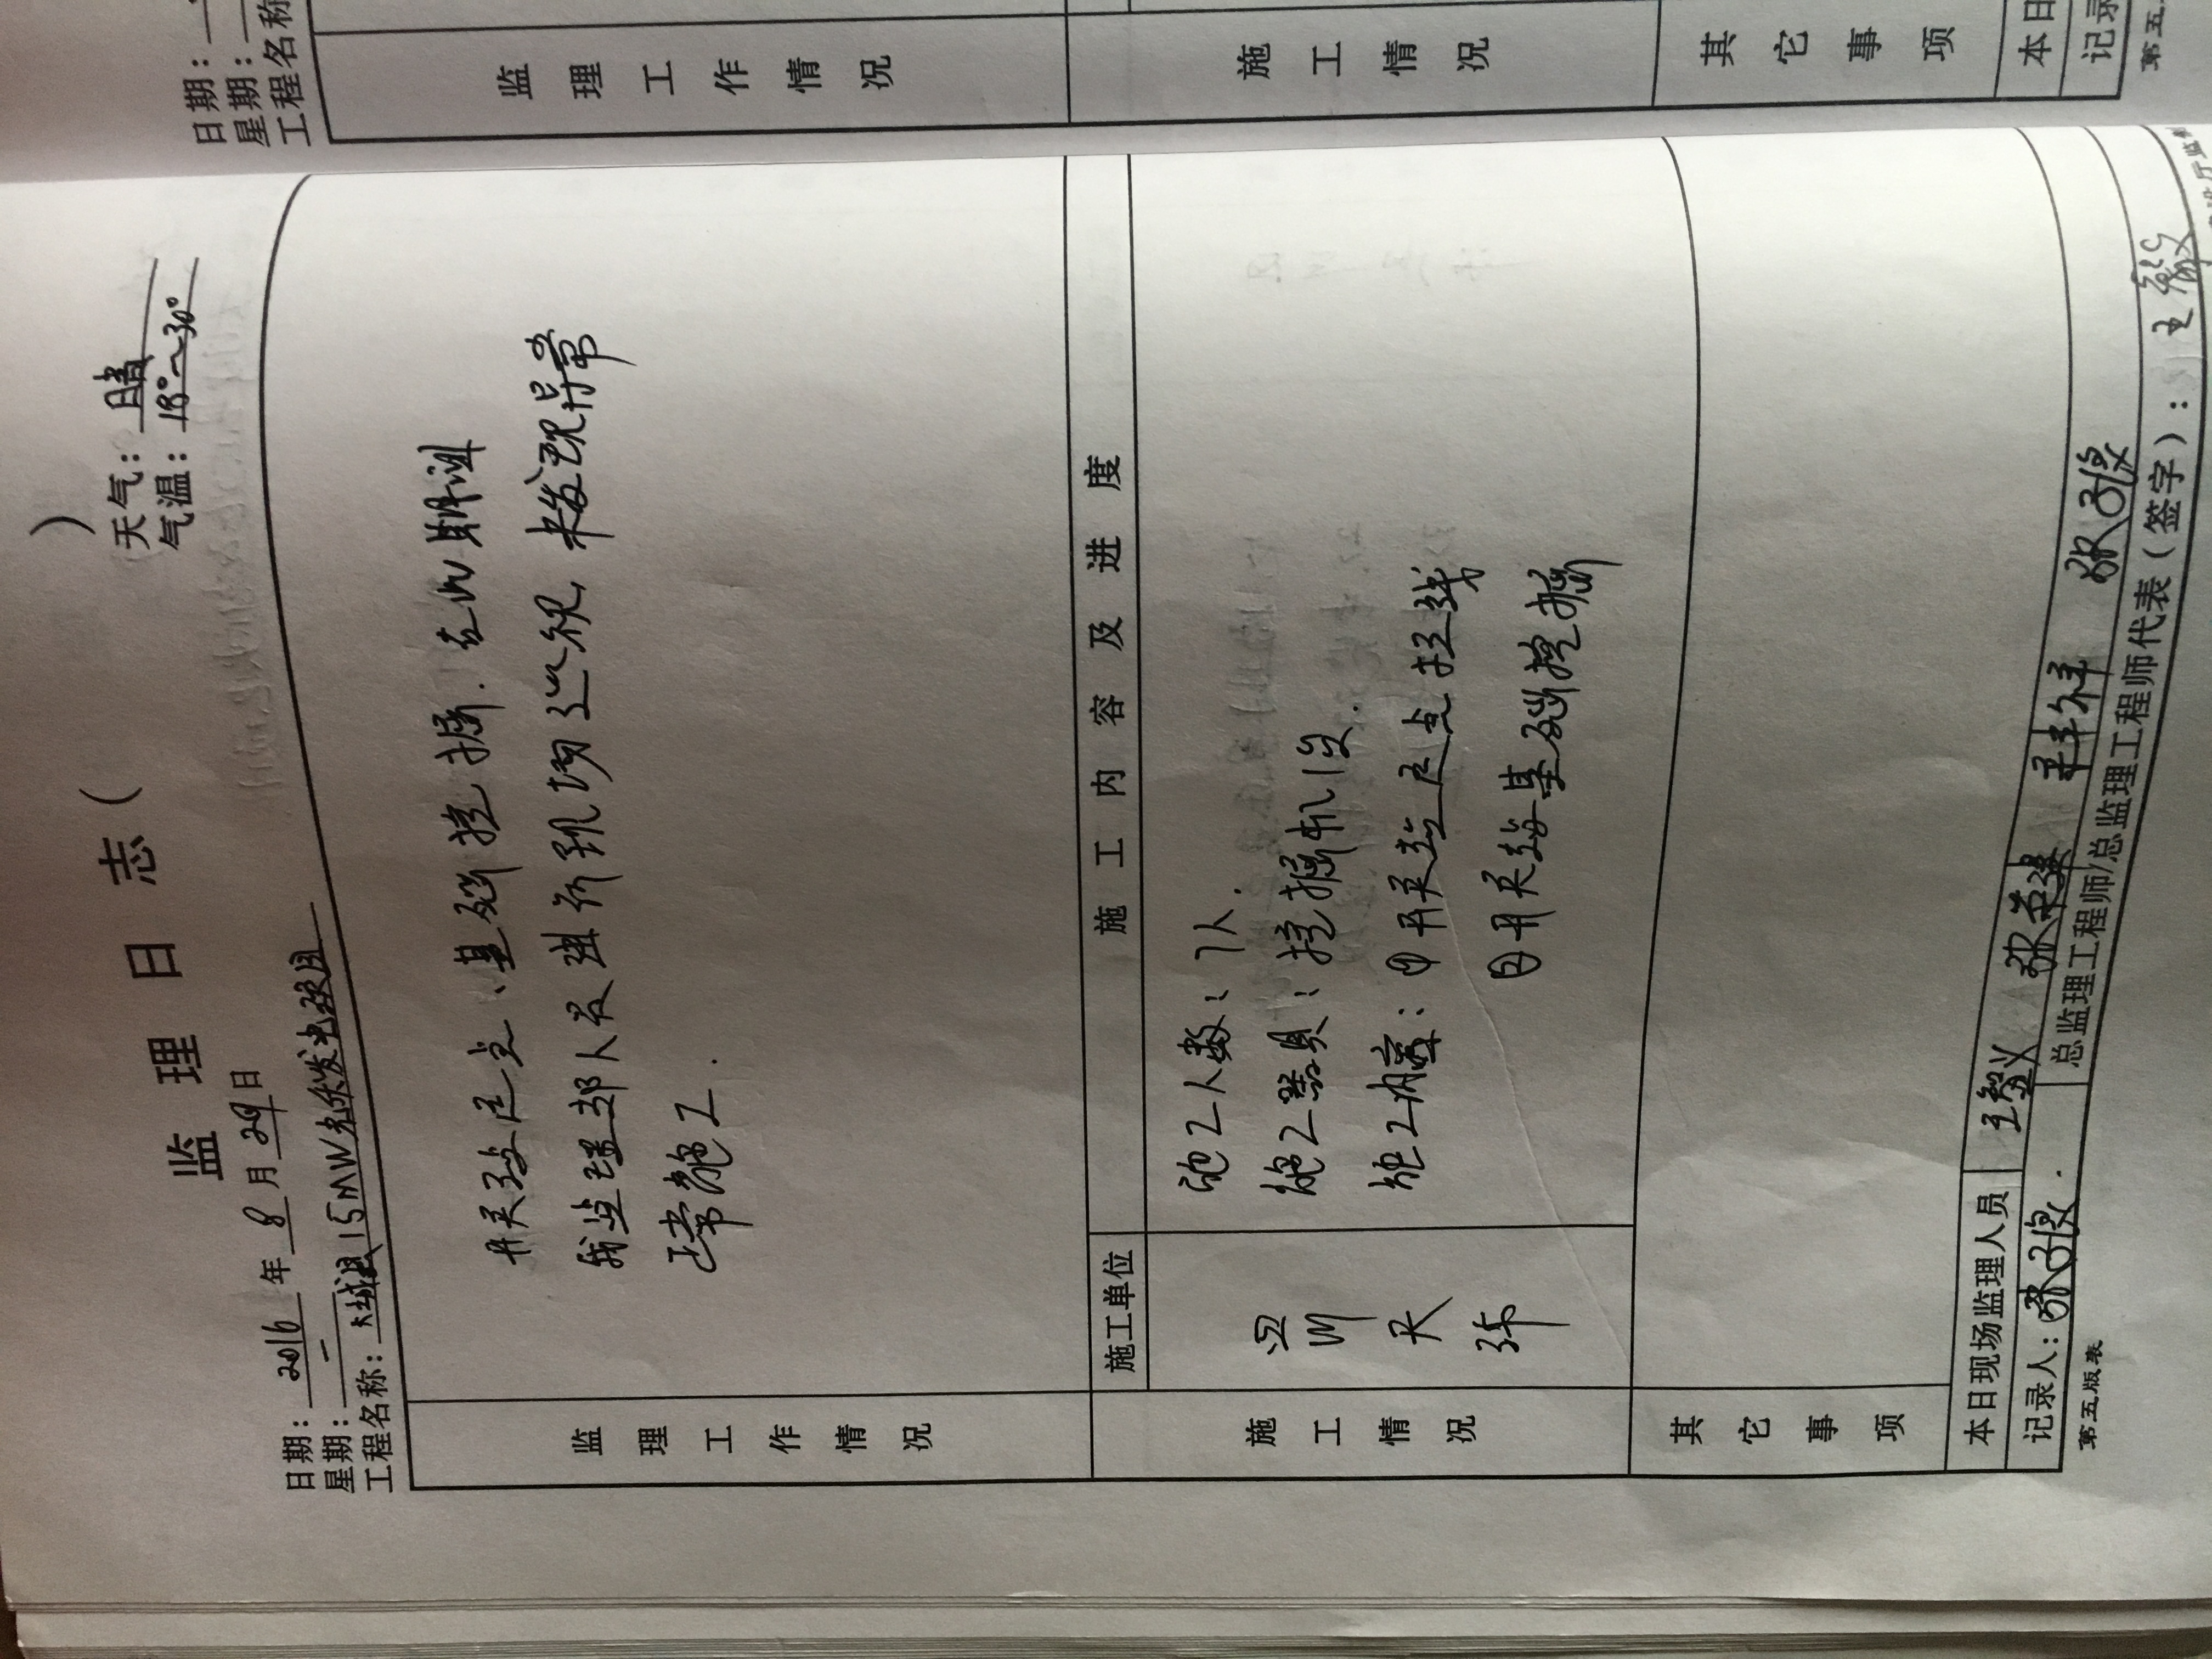 监理日志（ ）
日期：2016年8月29日 天气：晴
星期：一 气温：18°~30°
工程名称：大城县15MW光伏发电项目
监理工作情况
开关站定点、基础挖掘.在此期间
我监理部人员进行现场巡视,未发现异常
正常施工.
施工情况
施工单位 施工内容及进度
四川天
施工人数：7人.
施工器具：挖掘机1台.
施工内容：①开关站定点打线
②开关站基础挖掘
其它事项
本日现场监理人员 王智义
记录人：
总监理工程师/总监理工程师代表（签字）：王
第五版表
日期：
星期：
工程名称
监理工作情况
施工情况
其它事项
本日
记录
第五